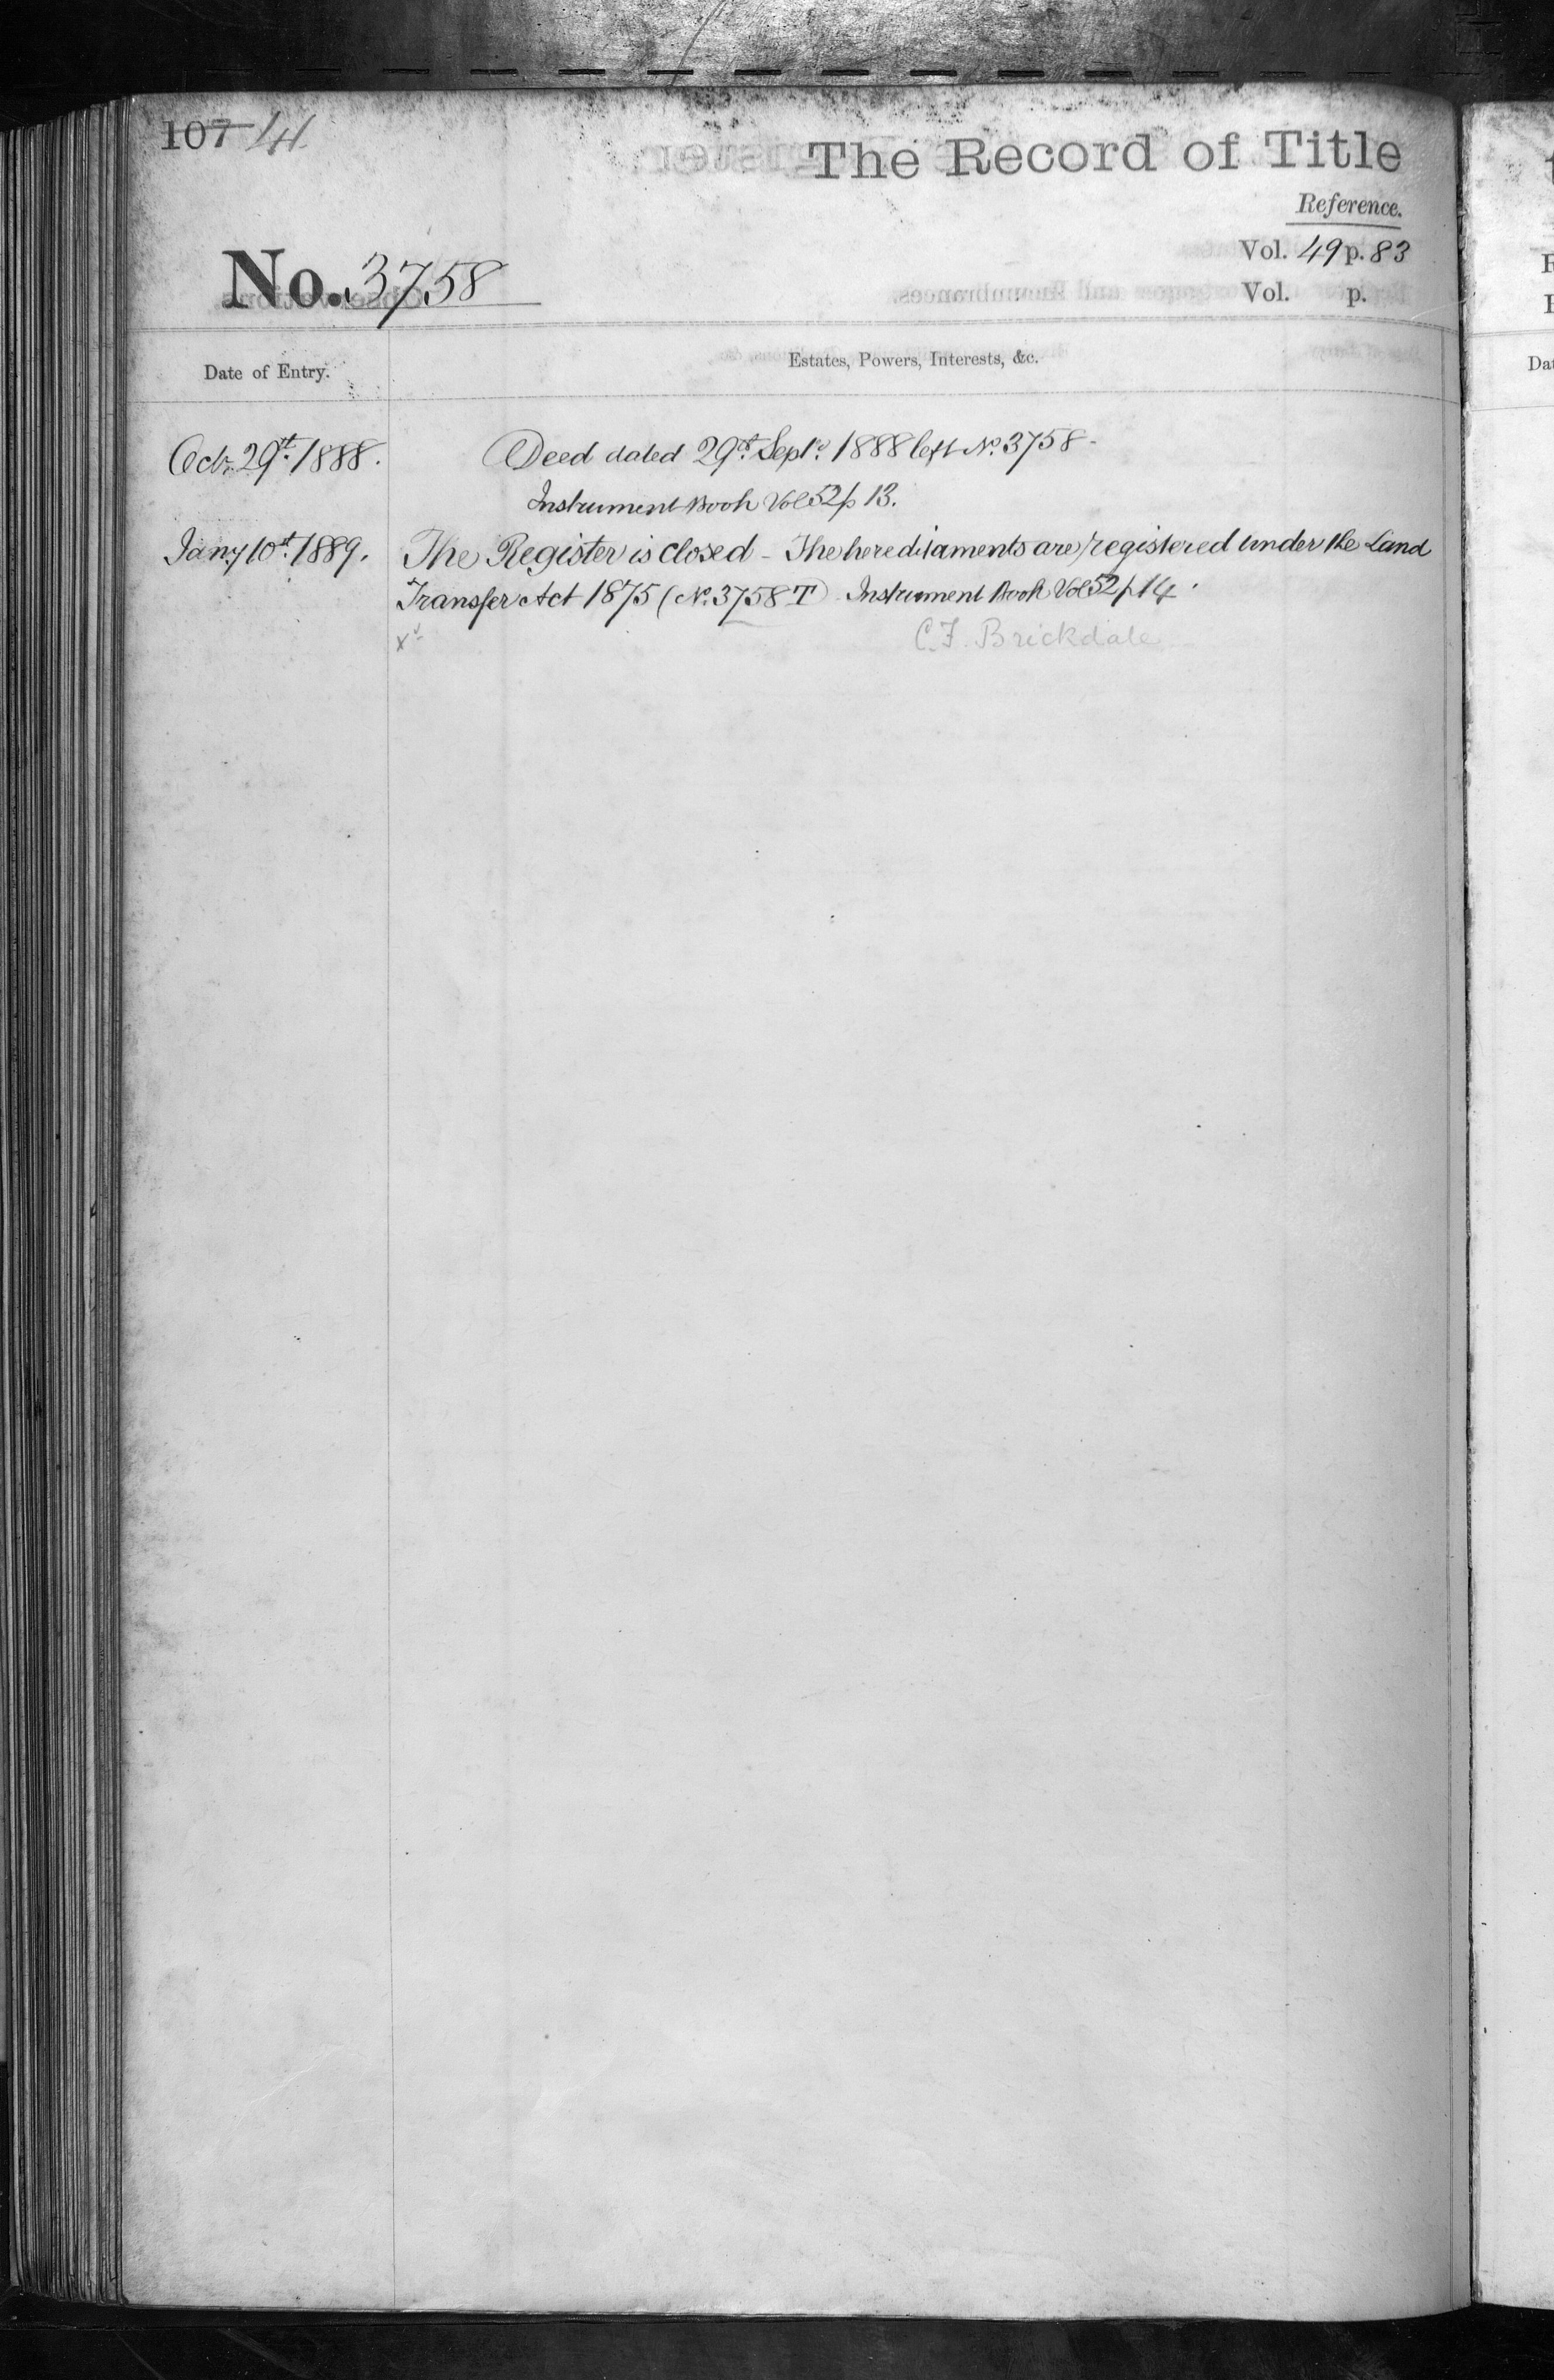 107 141
The Record of Title
Reference.
Vol. 49 p. 83
No. 3758
Vol. p.
Date of Entry.
Estates, Powers, Interests, &c.
Octr. 29th. 1888.
Deed dated 29th. Septr. 1888 left No. 3758-
Instrument Book Vol 52 p 13.
Jany 10th. 1889.
The Register is closed - The hereditaments are registered under the Land
Transfer Act 1875 (No. 3758 T) Instrument Book Vol 52 p 14.
C.F. Brickdale